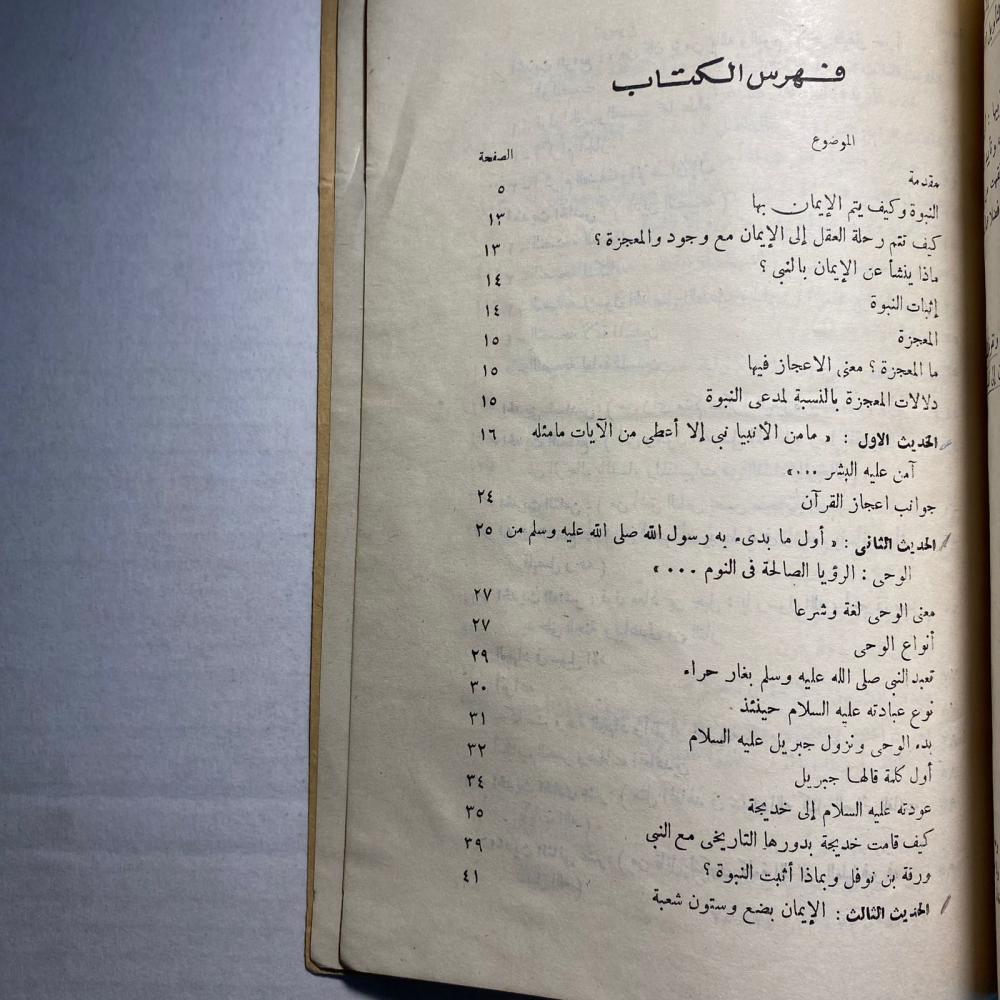 فهرس الكتاب
الموضوع الصفحة
مقدمة ٥
النبوة وكيف يتم الإيمان بها ١٣
كيف تتم رحلة العقل إلى الإيمان مع وجود والمعجزة ؟ ١٣
ماذا ينشأ عن الإيمان بالنبي ؟ ١٤
إثبات النبوة ١٤
المعجزة ١٥
ما المعجزة ؟ معنى الاعجاز فيها ١٥
دلالات المعجزة بالنسبة لمدعى النبوة ١٥
الحديث الاول : « مامن الأنبيا نبى إلا أعطى من الآيات مامثله ١٦
آمن عليه البشر ... »
جوانب اعجاز القرآن ٢٤
الحديث الثانى : « أول ما بدىء به رسول الله صلى الله عليه وسلم من ٢٥
الوحى : الرؤيا الصالحة فى النوم ... »
معنى الوحى لغة وشرعا ٢٧
أنواع الوحى ٢٧
تعبد النبى صلى الله عليه وسلم بغار حراء ٢٩
نوع عبادته عليه السلام حينئذ ٣٠
بدء الوحى ونزول جبريل عليه السلام ٣١
أول كلمة قالها جبريل ٣٢
عودته عليه السلام إلى خديجة ٣٤
كيف قامت خديجة بدورها التاريخى مع النبى ٣٥
ورقة بن نوفل وبماذا أثبت النبوة ؟ ٣٩
الحديث الثالث : الإيمان بضع وستون شعبة ٤١